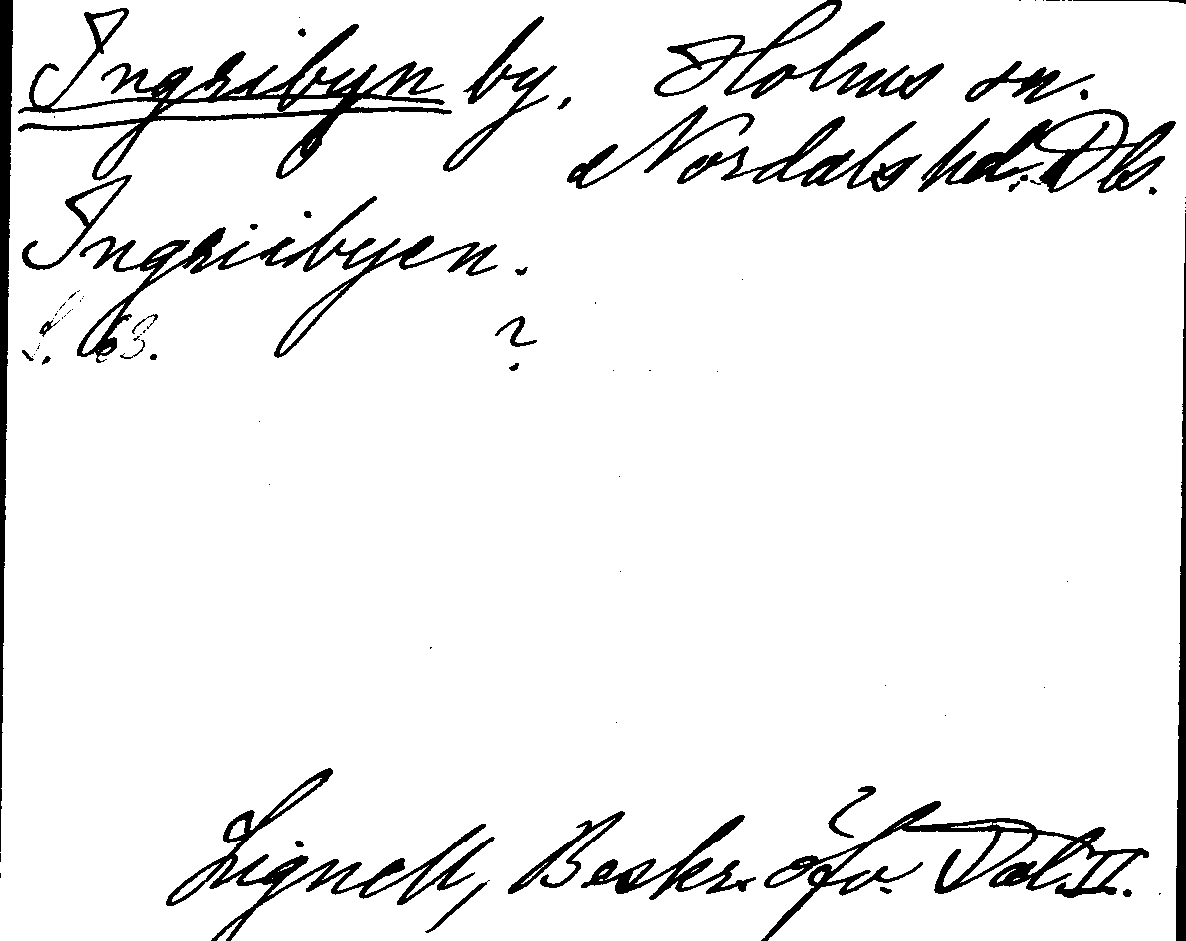 Ingribyn by. Holms sn.
Nordals hd. Dls.
Ingriibyen.
S. 63. ?
Lignell, Beskr. öfv. Dal. II.